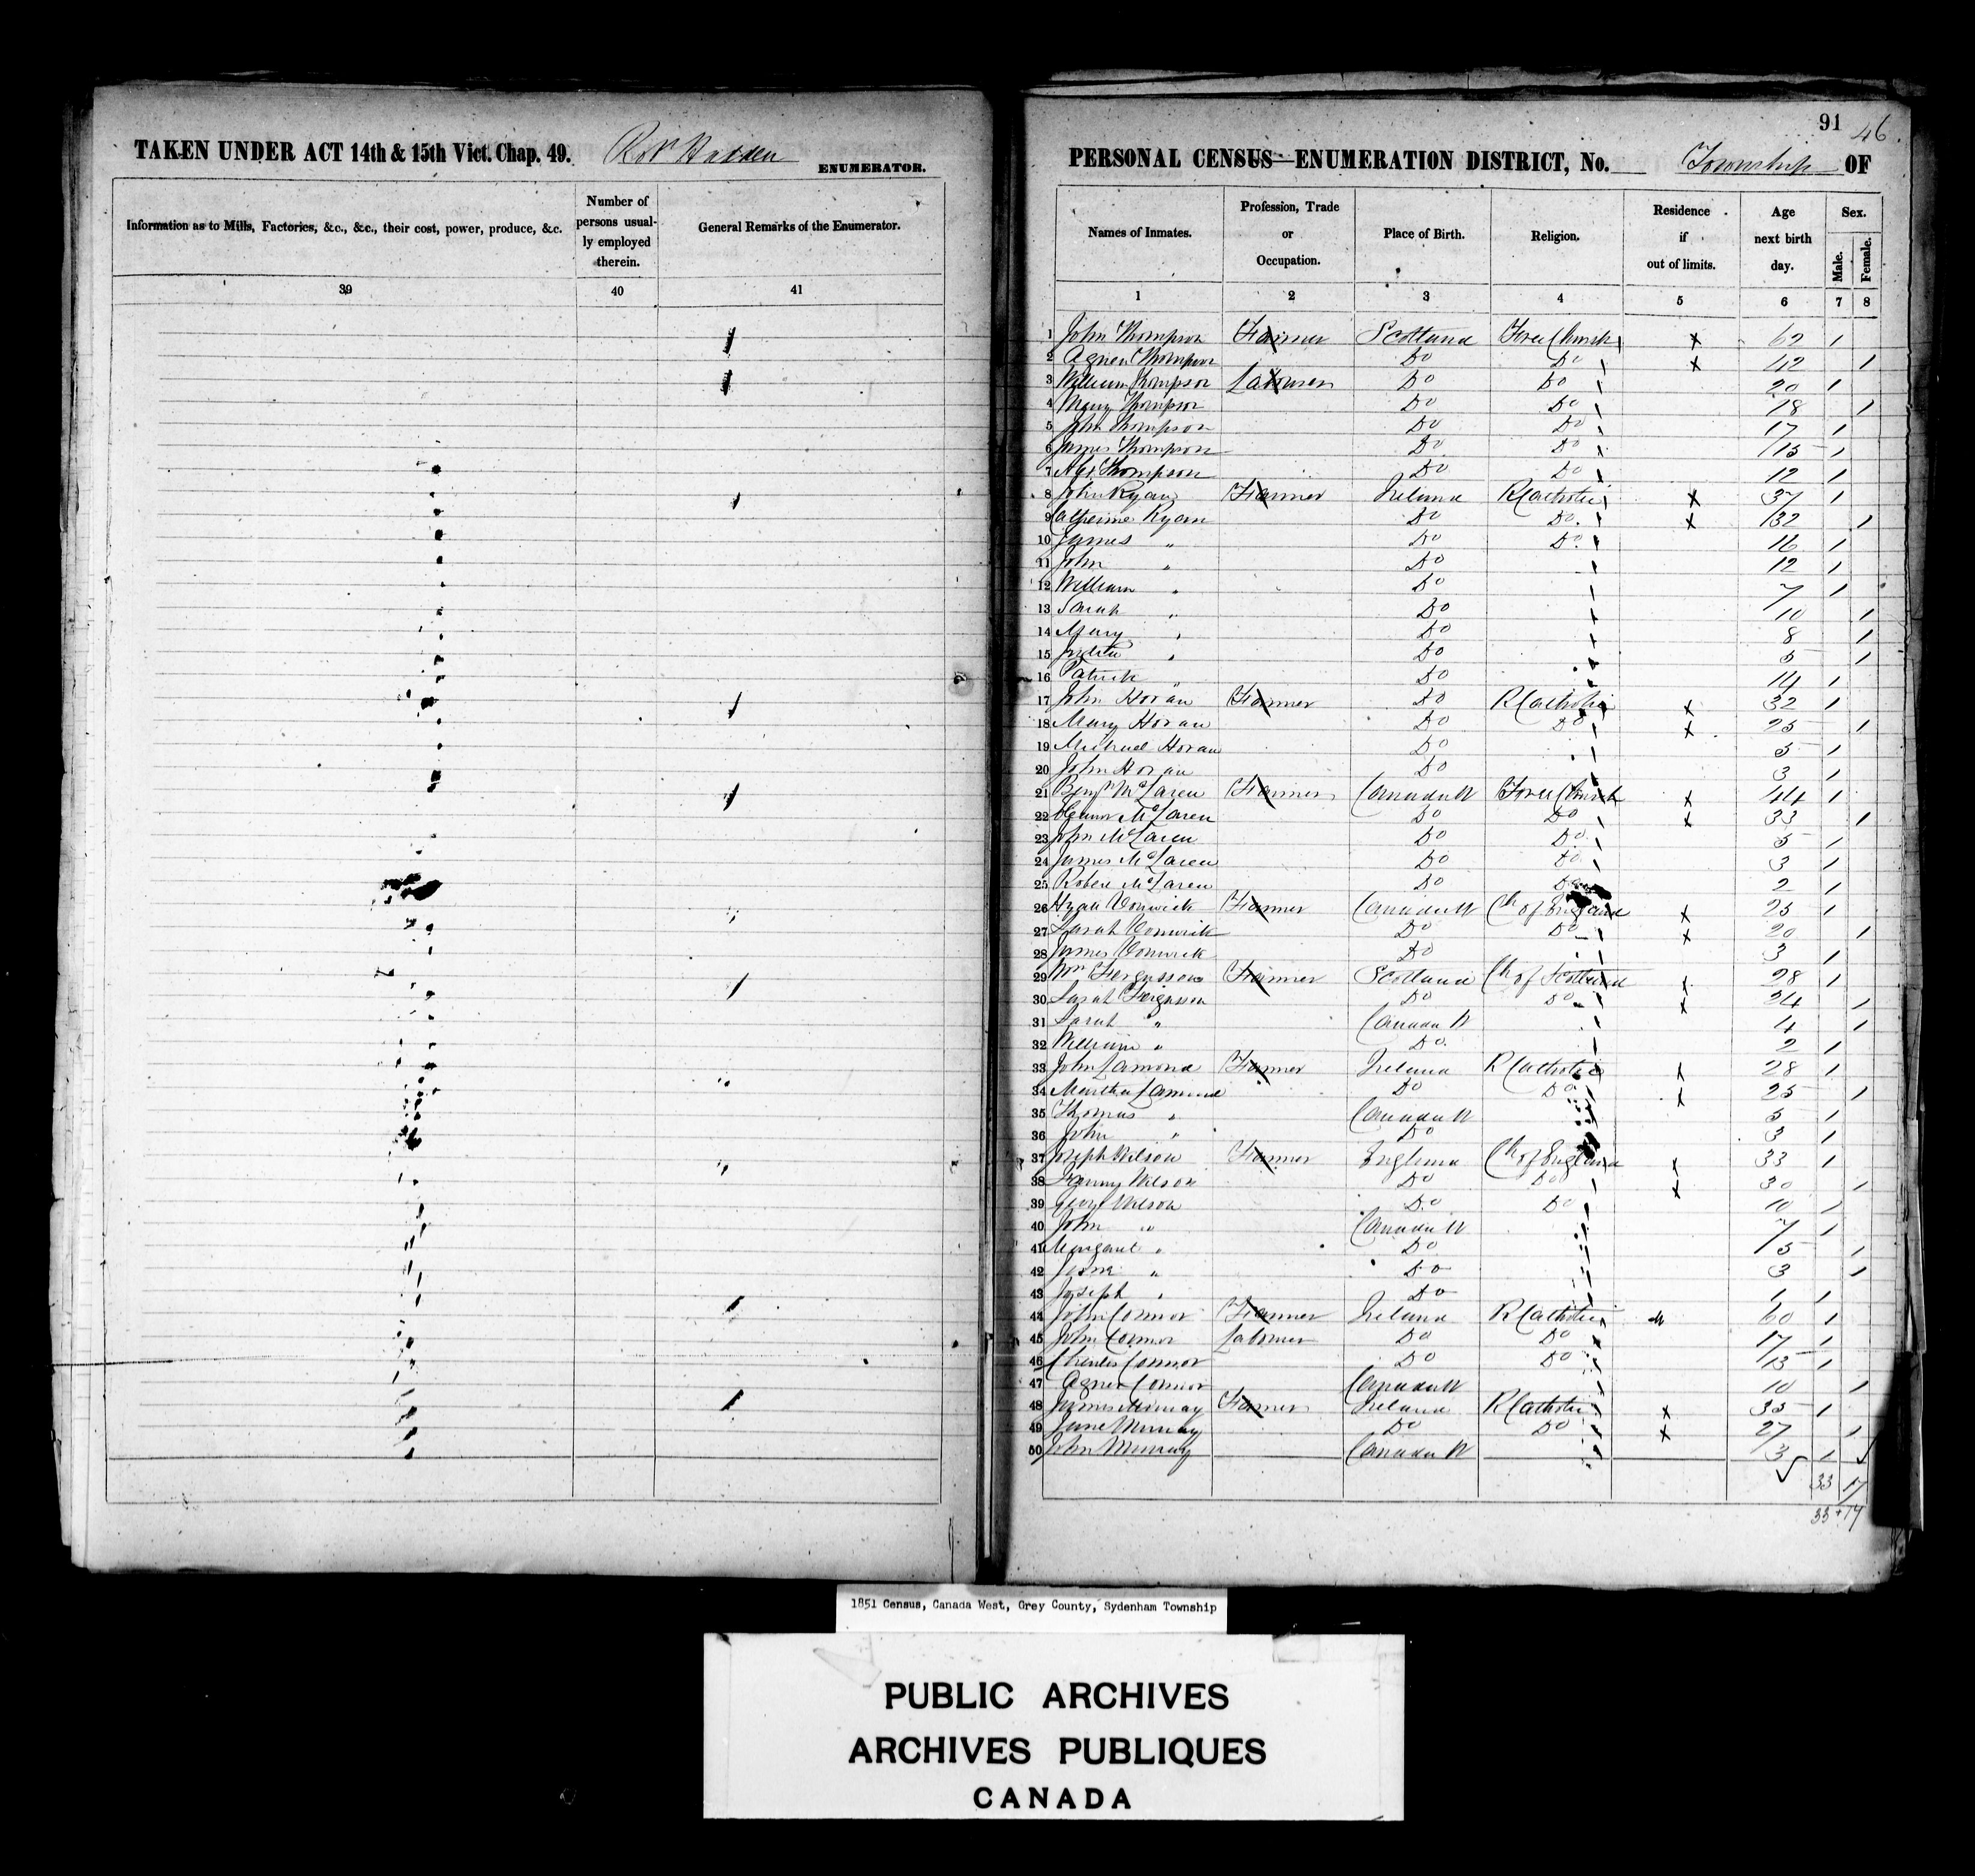 TAKEN UNDER ACT 14th & 15th Vict. Chap. 49. Robt ENUMERATOR.
Information as to Mills, Factories, &c., &c., their cost, power, produce, &c.
Number of persons usually employed therein.
General Remarks of the Enumerator.
39 40 41
91 46
PERSONAL CENSUS—ENUMERATION DISTRICT, No. Township OF
Names of Inmates.
Profession, Trade or Occupation.
Place of Birth.
Religion.
Residence if out of limits.
Age next birth day.
Sex.
Male. Female.
1 2 3 4 5 6 7 8
1 John Thompson Farmer Scotland Free Church x 62 1
2 Agnes Thompson Do Do x 42 1
3 William Thompson Labourer Do Do 20 1
4 Mary Thompson Do Do 18 1
5 John Thompson Do Do 17 1
6 James Thompson Do Do 15 1
7 Alex Thompson Do Do 12 1
8 John Ryan Farmer Ireland R Catholic x 37 1
9 Catherine Ryan Do Do x 32 1
10 James " Do Do 16 1
11 John " Do 12 1
12 William " Do 7 1
13 Sarah " Do 10 1
14 Mary " Do 8 1
15 " Do 5 1
16 Patrick " Do 14 1
17 John Horan Farmer Do R Catholic x 32 1
18 Mary Horan Do Do x 25 1
19 Michael Horan Do 5 1
20 John Horan Do 3 1
21 Benjn McLaren Farmer Canada W Free Church x 44 1
22 Eleanor McLaren Do Do x 33 1
23 John McLaren Do Do 5 1
24 James McLaren Do Do 3 1
25 Robert McLaren Do Do 2 1
26 Farmer Canada W Ch of England x 25 1
27 Sarah Do Do x 20 1
28 James Do 3 1
29 Wm Fergusson Farmer Scotland Ch of Scotland x 28 1
30 Sarah Fergusson Do Do x 24 1
31 Sarah " Canada W 4 1
32 William " Do 2 1
33 John Lamond Farmer Ireland R Catholic x 28 1
34 Martha Lamond Do Do x 25 1
35 Thomas " Canada W 5 1
36 John " Do 3 1
37 Joseph Wilson Farmer England Ch of England x 33 1
38 Fanny Wilson Do Do x 30 1
39 George Wilson Do Do 10 1
40 John " Canada W 7 1
41 Margaret " Do 5 1
42 Jane " Do 3 1
43 Joseph " Do 1 1
44 John Connor Farmer Ireland R Catholic 60 1
45 John Connor Labourer Do Do 17 1
46 Charles Connor Do Do 13 1
47 Agnes Connor Canada W 10 1
48 James Murray Farmer Ireland R Catholic x 35 1
49 Jane Murray Do Do x 27 1
50 John Murray Canada W 3 1
33 17
33 + 17
1851 Census, Canada West, Grey County, Sydenham Township
PUBLIC ARCHIVES
ARCHIVES PUBLIQUES
CANADA